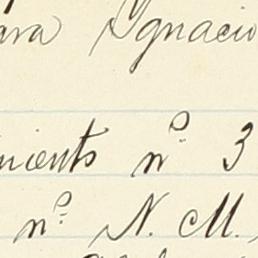 ara Ignacio
mients nº 3
nº N. M.